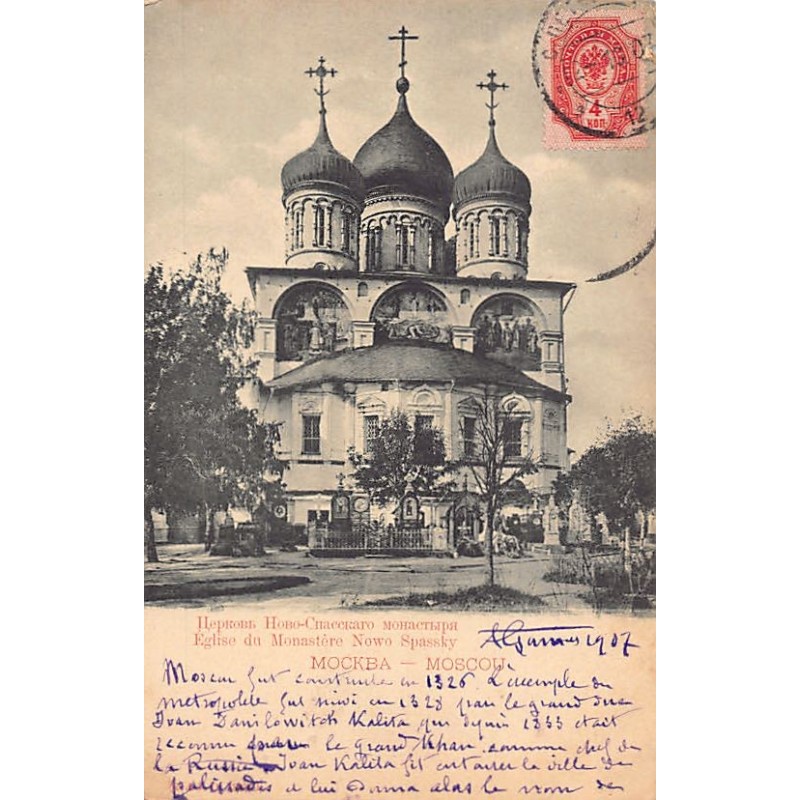 ПОЧТОВАЯ МАРКА
4
КОП
12
Церковь Ново-Спасскаго монастыря
Église du Monastère Nowo Spassky
1907
МОСКВА — MOSCOU
Moscou fut construite en 1326. L'exemple du
métropolite fut suivi en 1328 par le grand duc
Ivan Danilowitch Kalita qui depuis 1333 était
reconnu par le grand Khan comme chef de
la Russie Ivan Kalita fit entourer la ville de
palissades et lui donna alors le nom de